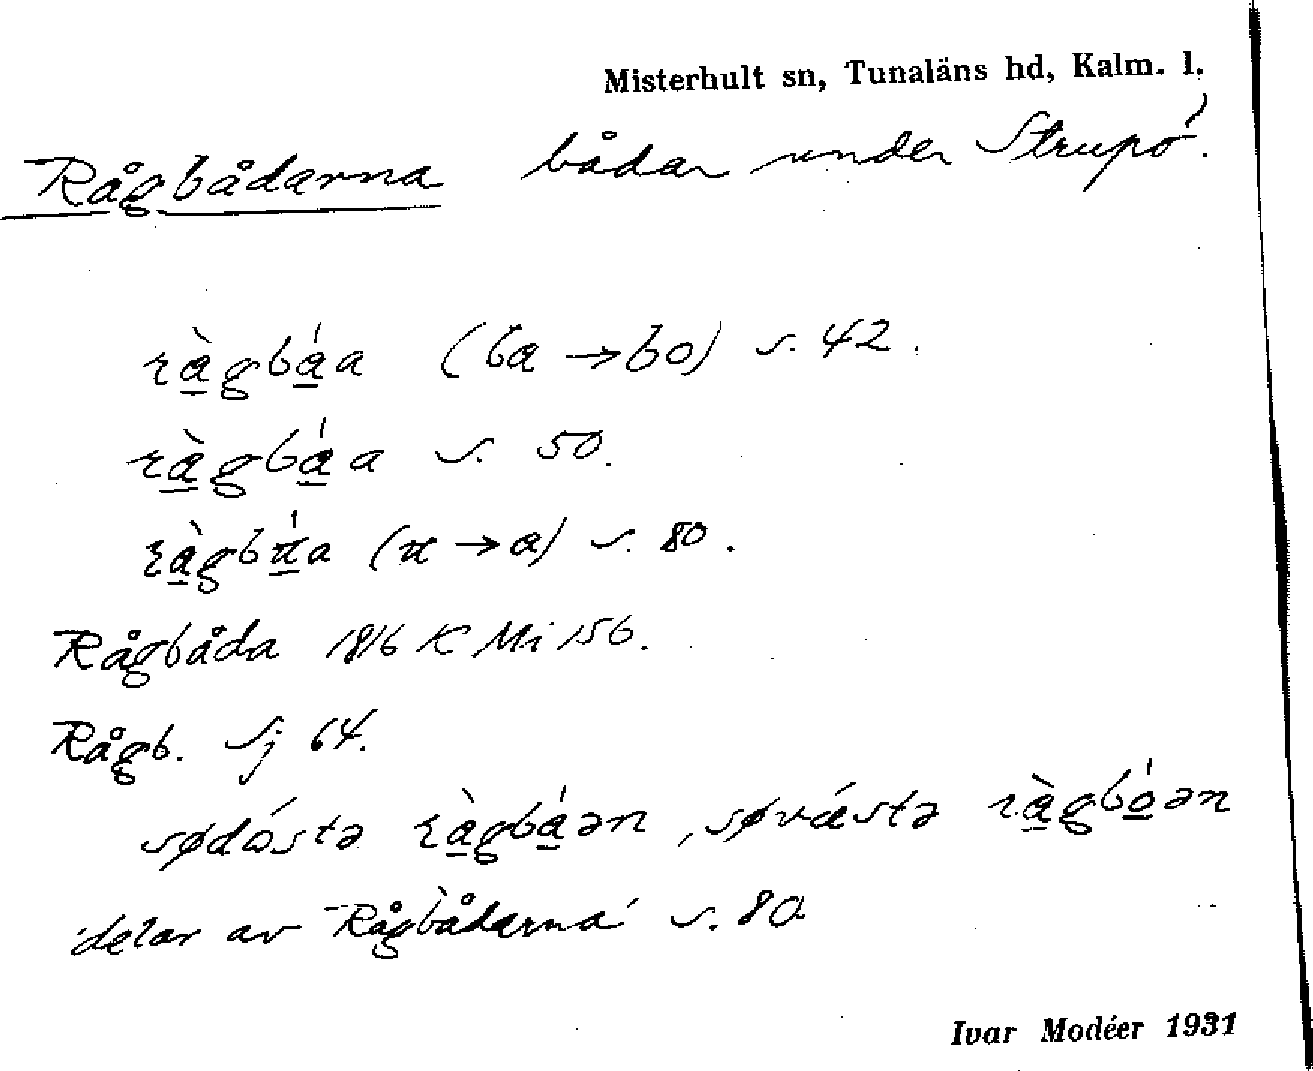 Misterhult sn, Tunaläns hd, Kalm. l.
Rågbådarna bådar under Strupö.
ràgbáa (ba → bo) s. 42.
ràgbáa s. 50.
ràgbáa (α → a) s. 80.
Rågbåda 1816 K Mi 156.
Rågb. Sj 64.
sødóstə ràgbáən, søvǽstə ràgbóən
delar av Rågbådarna s. 80
Ivar Modéer 1931